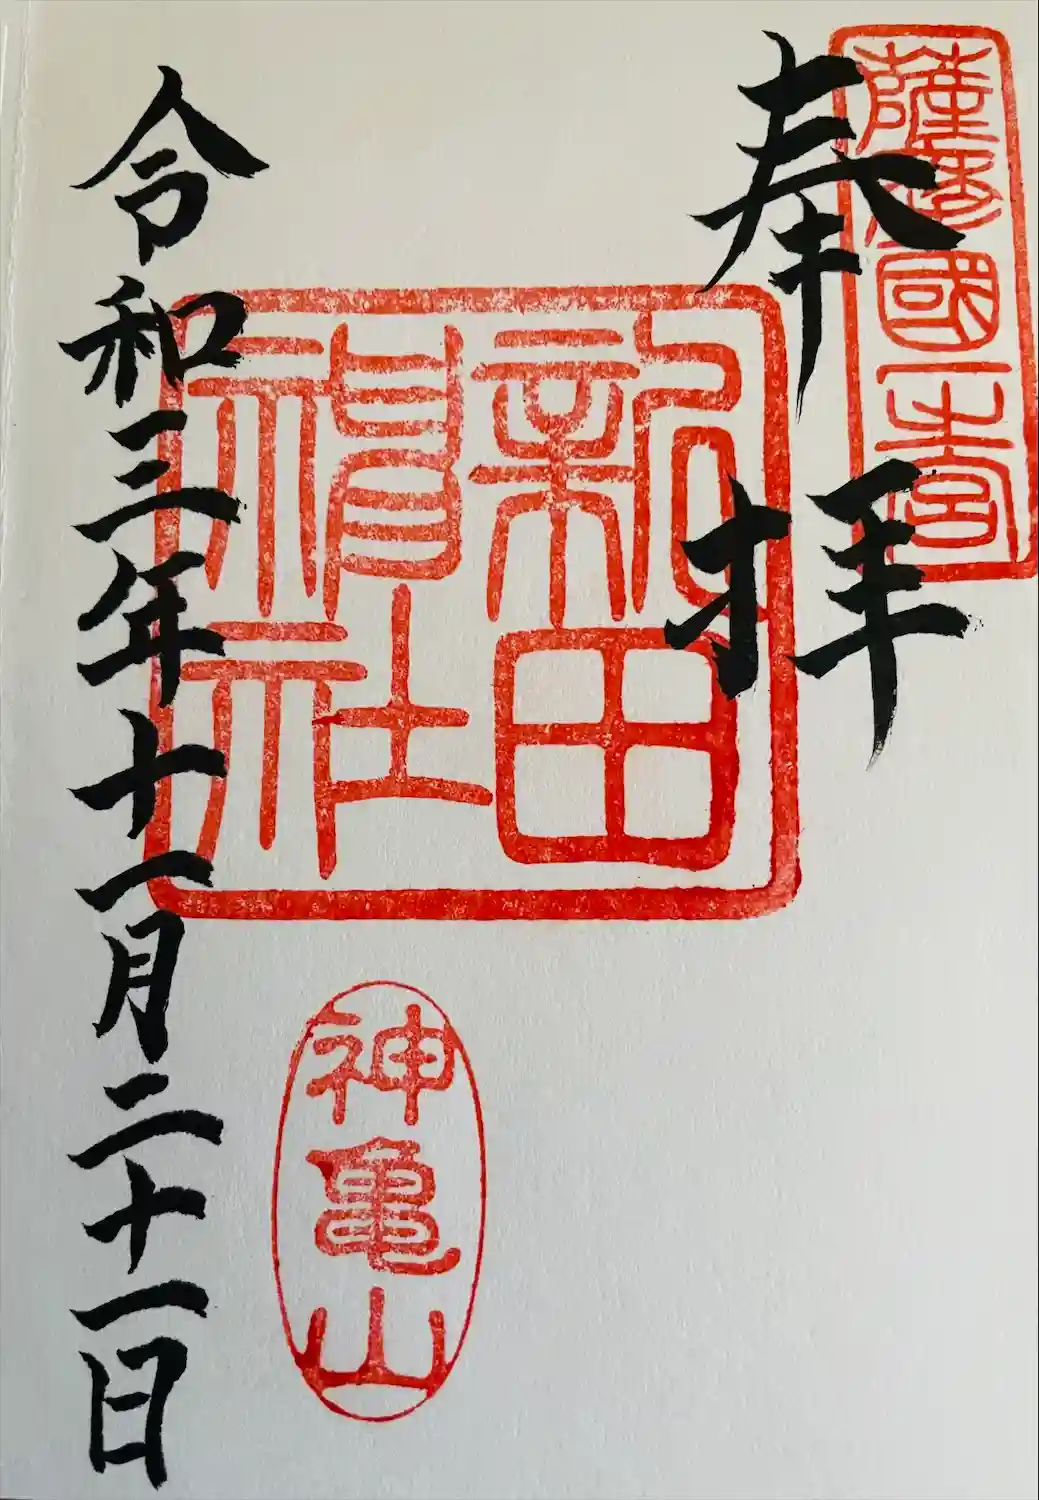 薩摩國一之宮
奉拝
新田
神社
神亀山
令和三年十一月二十一日